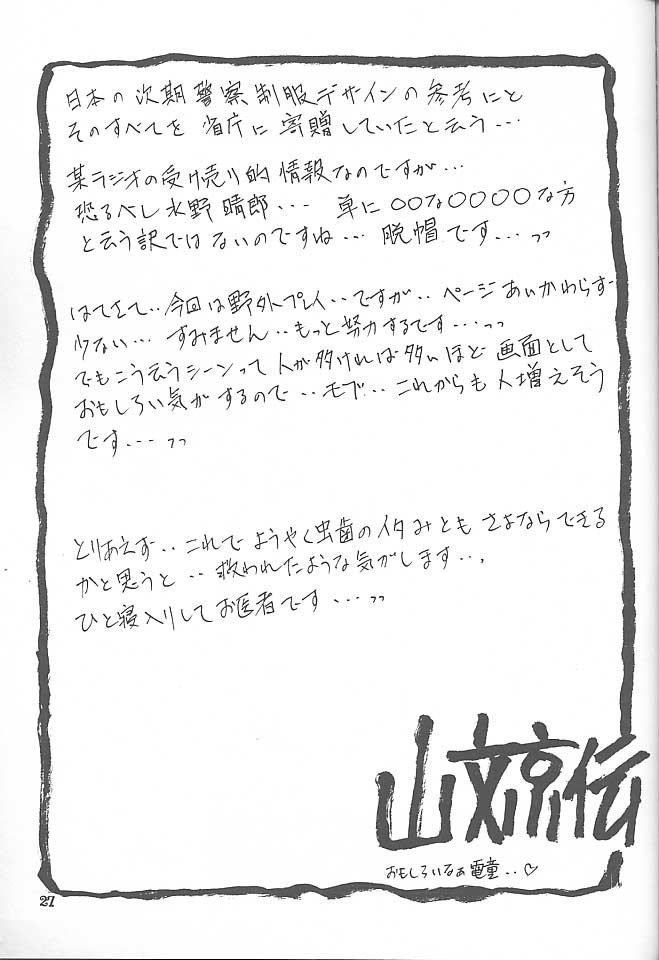 日本の次期警察制服デザインの参考にと
そのすべてを省庁に寄贈していたと云う…
某ラジオの受け売り的情報なのですが…
恐るべし水野晴郎... 単に○○な○○○○な方
と云う訳ではないのですね… 脱帽です…っっ
はてさて‥今回は野外プレイ‥ですが‥ページあいかわらず
少ない… すみません‥もっと努力するです…っっ
でもこう云うシーンって人が多ければ多いほど画面として
おもしろい気がするので‥モブ‥これからも人増えそう
です…っっ
とりあえず‥これでようやく虫歯のイタみともさよならできる
かと思うと‥救われたような気がします‥.
ひと寝入りしてお医者です…っっ
山文京伝
おもしろいなぁ電童‥♡
27